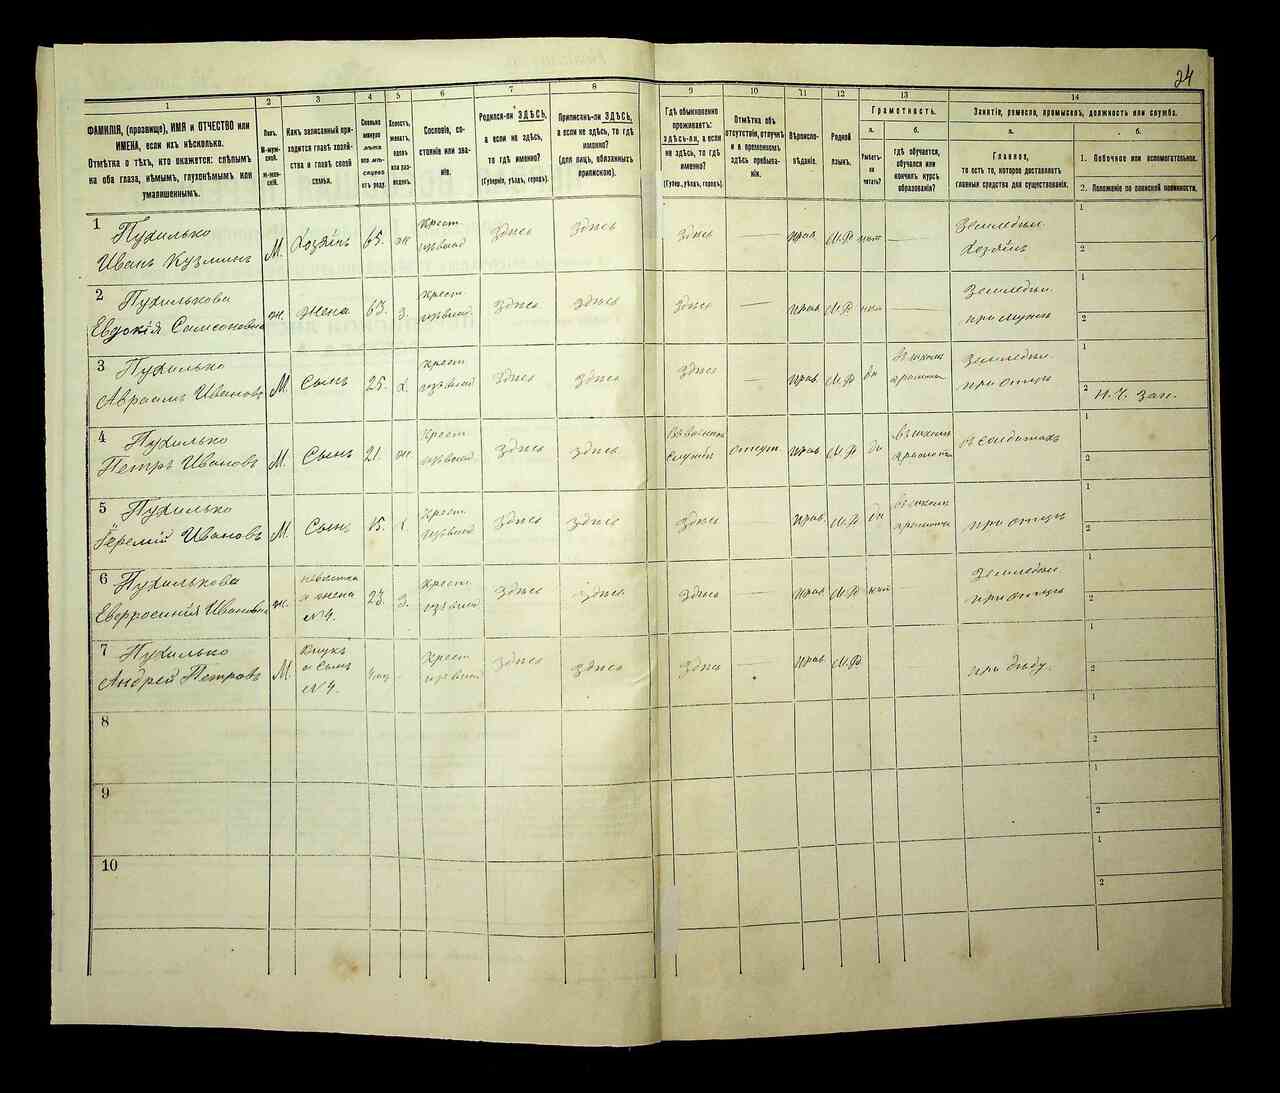 24
1
2
3
4
5
6
7
8
9
10
11
12
13
14
ФАМИЛІЯ, (прозвище), ИМЯ и ОТЧЕСТВО или
ИМЕНА, если ихъ нѣсколько.
Отмѣтка о тѣхъ, кто окажется: слѣпымъ
на оба глаза, нѣмымъ, глухонѣмымъ или
умалишеннымъ.
Полъ.
М-муж-
ской.
Ж-жен-
скій.
Какъ записанный при-
ходится главѣ хозяй-
ства и главѣ своей
семьи.
Сколько
минуло
лѣтъ
или мѣ-
сяцевъ
отъ роду.
Холостъ,
женатъ,
вдовъ
или раз-
веденъ.
Сословіе, со-
стояніе или зва-
ніе.
Родился-ли ЗДѢСЬ,
а если не здѣсь,
то гдѣ именно?
(Губернія, уѣздъ, городъ).
Приписанъ-ли ЗДѢСЬ,
а если не здѣсь, то гдѣ
именно?
(для лицъ, обязанныхъ
припискою).
Гдѣ обыкновенно
проживаетъ:
ЗДѢСЬ-ли, а если
не здѣсь, то гдѣ
именно?
(Губер., уѣздъ, городъ).
Отмѣтка объ
отсутствіи, отлучкѣ
и о временномъ
здѣсь пребыва-
ніи.
Вѣроиспо-
вѣданіе.
Родной
языкъ.
Грамотность.
а.
Умѣетъ-
ли
читать?
б.
гдѣ обучается,
обучался или
кончилъ курсъ
образованія?
Занятіе, ремесло, промыселъ, должность или служба.
а.
Главное,
то есть то, которое доставляетъ
главныя средства для существованія.
б.
1. Побочное или вспомогательное.
2. Положеніе по воинской повинности.
1
Пухилько
Иванъ Кузминъ
М.
Хозяинъ
65.
ж
Крест.
Здѣсь
Здѣсь
Здѣсь
—
Прав.
М.Р
нет
—
Земледѣл.
Хозяинъ
1
2
2
Пухилькова
Евдокія Самсоновна
ж.
Жена
63.
З.
Крест.
Здѣсь
Здѣсь
Здѣсь
—
Прав.
М.Р
—
Земледѣл.
при мужѣ
1
2
3
Пухилько
Авраамъ Ивановъ
М.
Сынъ
25.
Х.
Крест.
Здѣсь
Здѣсь
Здѣсь
—
Прав.
М.Р
да
въ школѣ
Земледѣл.
при отцѣ
1
2 Н. Ч. Зап.
4
Пухилько
Петръ Ивановъ
М.
Сынъ
21.
ж
Крест.
Здѣсь
Здѣсь
Въ военной
службѣ
отсут.
Прав.
М.Р
да
въ школѣ
въ солдатахъ
1
2
5
Пухилько
Іеремій Ивановъ
М.
Сынъ
15.
Х
Крест.
Здѣсь
Здѣсь
Здѣсь
Прав.
М.Р
да
въ школѣ
при отцѣ
1
2
6
Пухилькова
Ивановна
ж.
невѣстка
а жена
№4.
23.
З.
Крест.
Здѣсь
Здѣсь
Здѣсь
—
Прав.
М.Р
—
Земледѣл.
при отцѣ
1
2
7
Пухилько
Андрей Петровъ
М.
Внукъ
а сынъ
№4.
-
Крест.
Здѣсь
Здѣсь
Здѣсь
—
Прав.
М.Р
при дѣду.
1
2
8
1
2
9
1
2
10
1
2